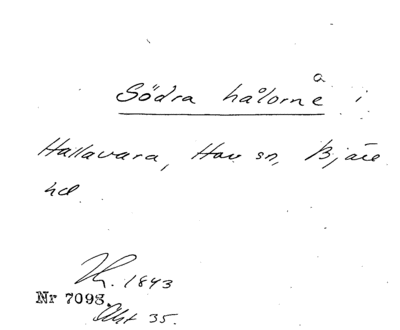 a
Södra hålorne i
Hallavara, Hov sn, Bjäre
hd
1843
Nr 7098.
35.